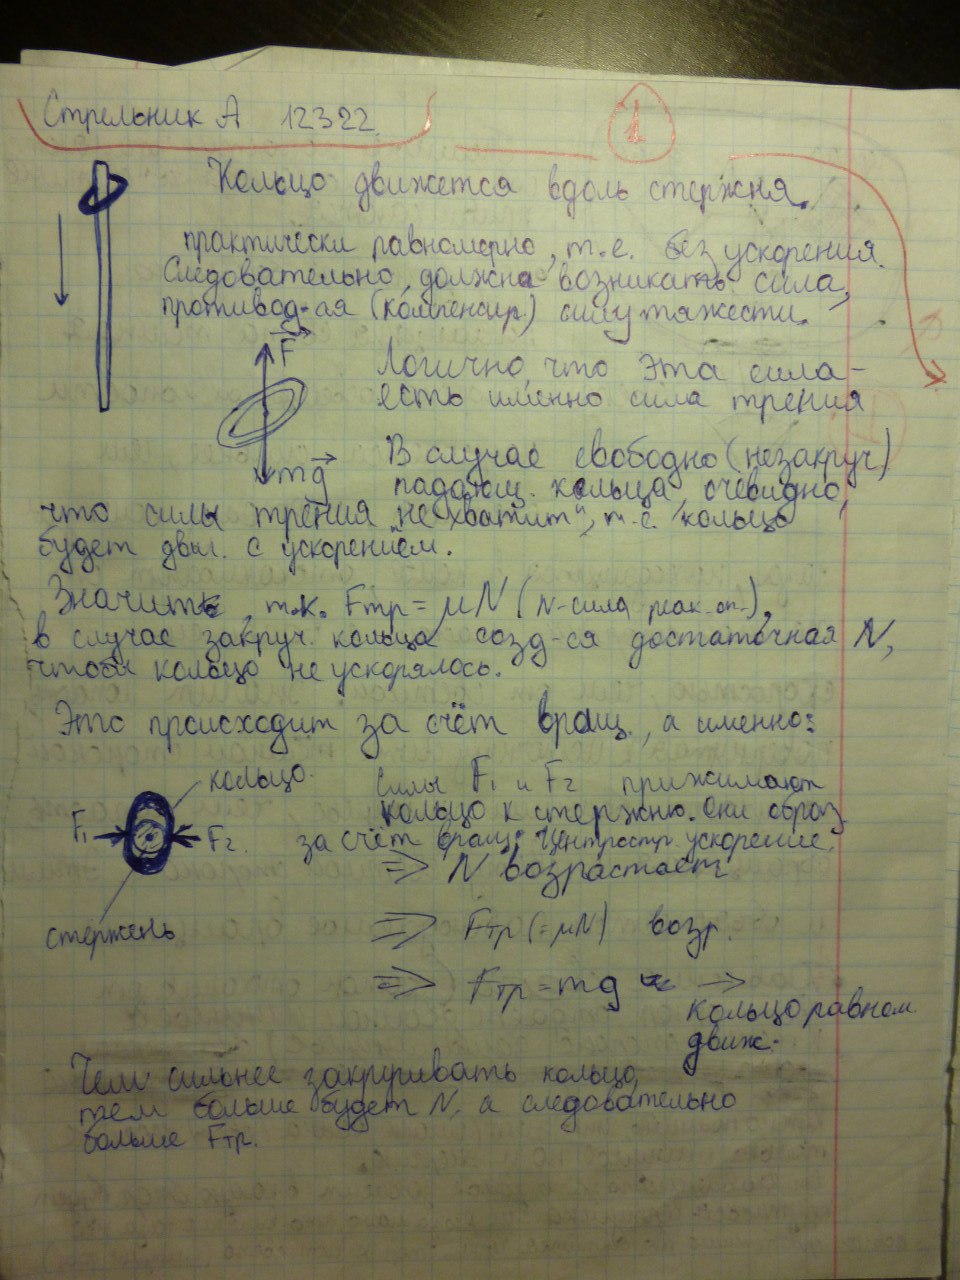 Стрельник А 12322
1
Кольцо движется вдоль стержня
практически равномерно, т.е. без ускорения.
Следовательно, должна возникать сила,
противод-ая (компенсир.) силу тяжести.
F
Логично, что эта сила -
есть именно сила трения
mg
В случае свободно (незакруч)
падающ. кольца, очевидно,
что силы трения "не хватит", т.е. кольцо
будет двиг. с ускорением.
Значит, т.к. Fтр = μN (N-сила реак. оп.),
в случае закруч. кольца созд-ся достаточная N,
чтобы кольцо не ускорялось.
Это происходит за счёт вращ., а именно:
кольцо.
Силы F₁ и F₂ прижимают
кольцо к стержню. Они образ.
F₁ F₂ за счёт вращ. Центростр. ускорение.
⇒ N возрастает
стержень
⇒ Fтр (=μN) возр.
⇒ Fтр = mg →
кольцо равном.
движ.
Чем сильнее закручивать кольцо,
тем больше будет N, а следовательно
больше Fтр.